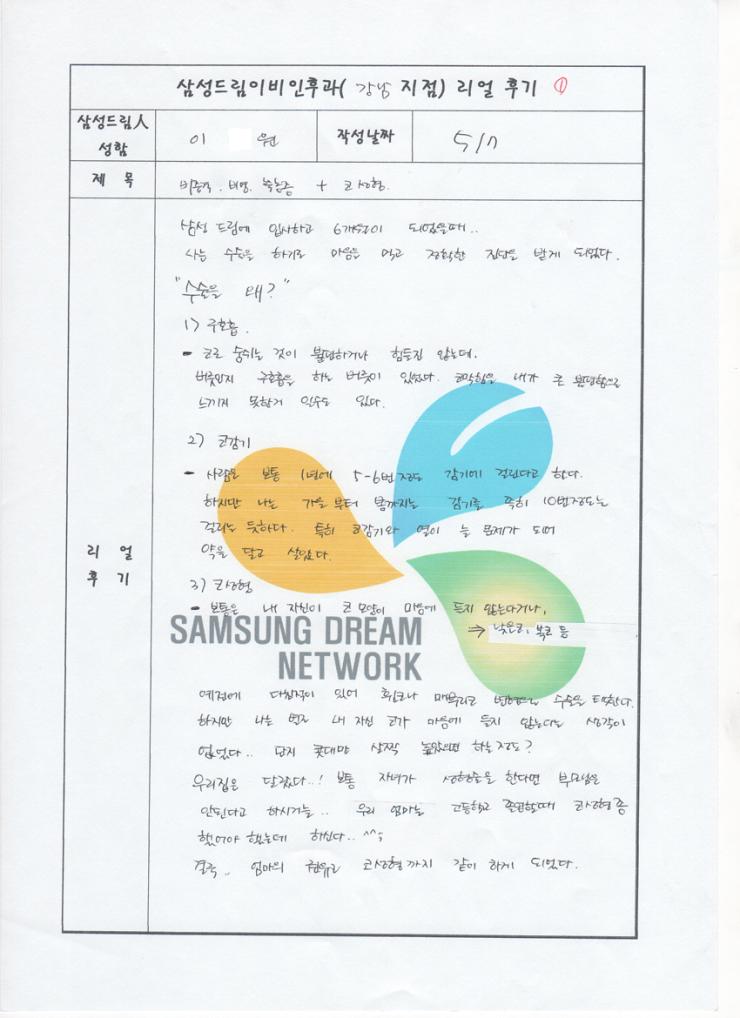 삼성드림이비인후과( 강남 지점) 리얼 후기 ①
삼성드림人
성함
이 원
작성날짜
5/7
제 목
비중격. 비염. 축농증 + 코성형.
리 얼
후 기
삼성 드림에 입사하고 6개월이 되었을때..
나는 수술을 하기로 마음을 먹고 정확한 진단을 받게 되었다.
"수술을 왜?"
1) 구호흡.
- 코로 숨쉬는 것이 불편하거나 힘들진 않는데.
버릇인지 구호흡을 하는 버릇이 있었다. 코막힘을 내가 큰 불편함으로
느끼지 못한거 일수도 있다.
2) 코감기
- 사람은 보통 1년에 5-6번 정도 감기에 걸린다고 한다.
하지만 나는 가을 부터 봄까지는 감기를 족히 10번정도는
걸리는 듯하다. 특히 코감기와 열이 늘 문제가 되어
약을 달고 살았다.
3) 코성형
- 보통은 내 자신이 코 모양이 마음에 들지 않는다거나,
⇒ 낮은코, 복코 등
SAMSUNG DREAM
NETWORK
예전에 다친적이 있어 휘었거나 매부리코 변형으로 수술을 택한다.
하지만 나는 먼저 내 자신 코가 마음에 들지 않는다는 생각이
없었다.. 단지 콧대만 살짝 높았으면 하는 정도?
우리집은 달랐다..! 보통 자녀가 성형술을 한다면 부모님은
안된다고 하시거늘.. 우리 엄마는 고등학교 졸업할때 코성형 좀
했어야 했는데 하신다..^^;
결국.. 엄마의 권유로 코성형까지 같이 하게 되었다.